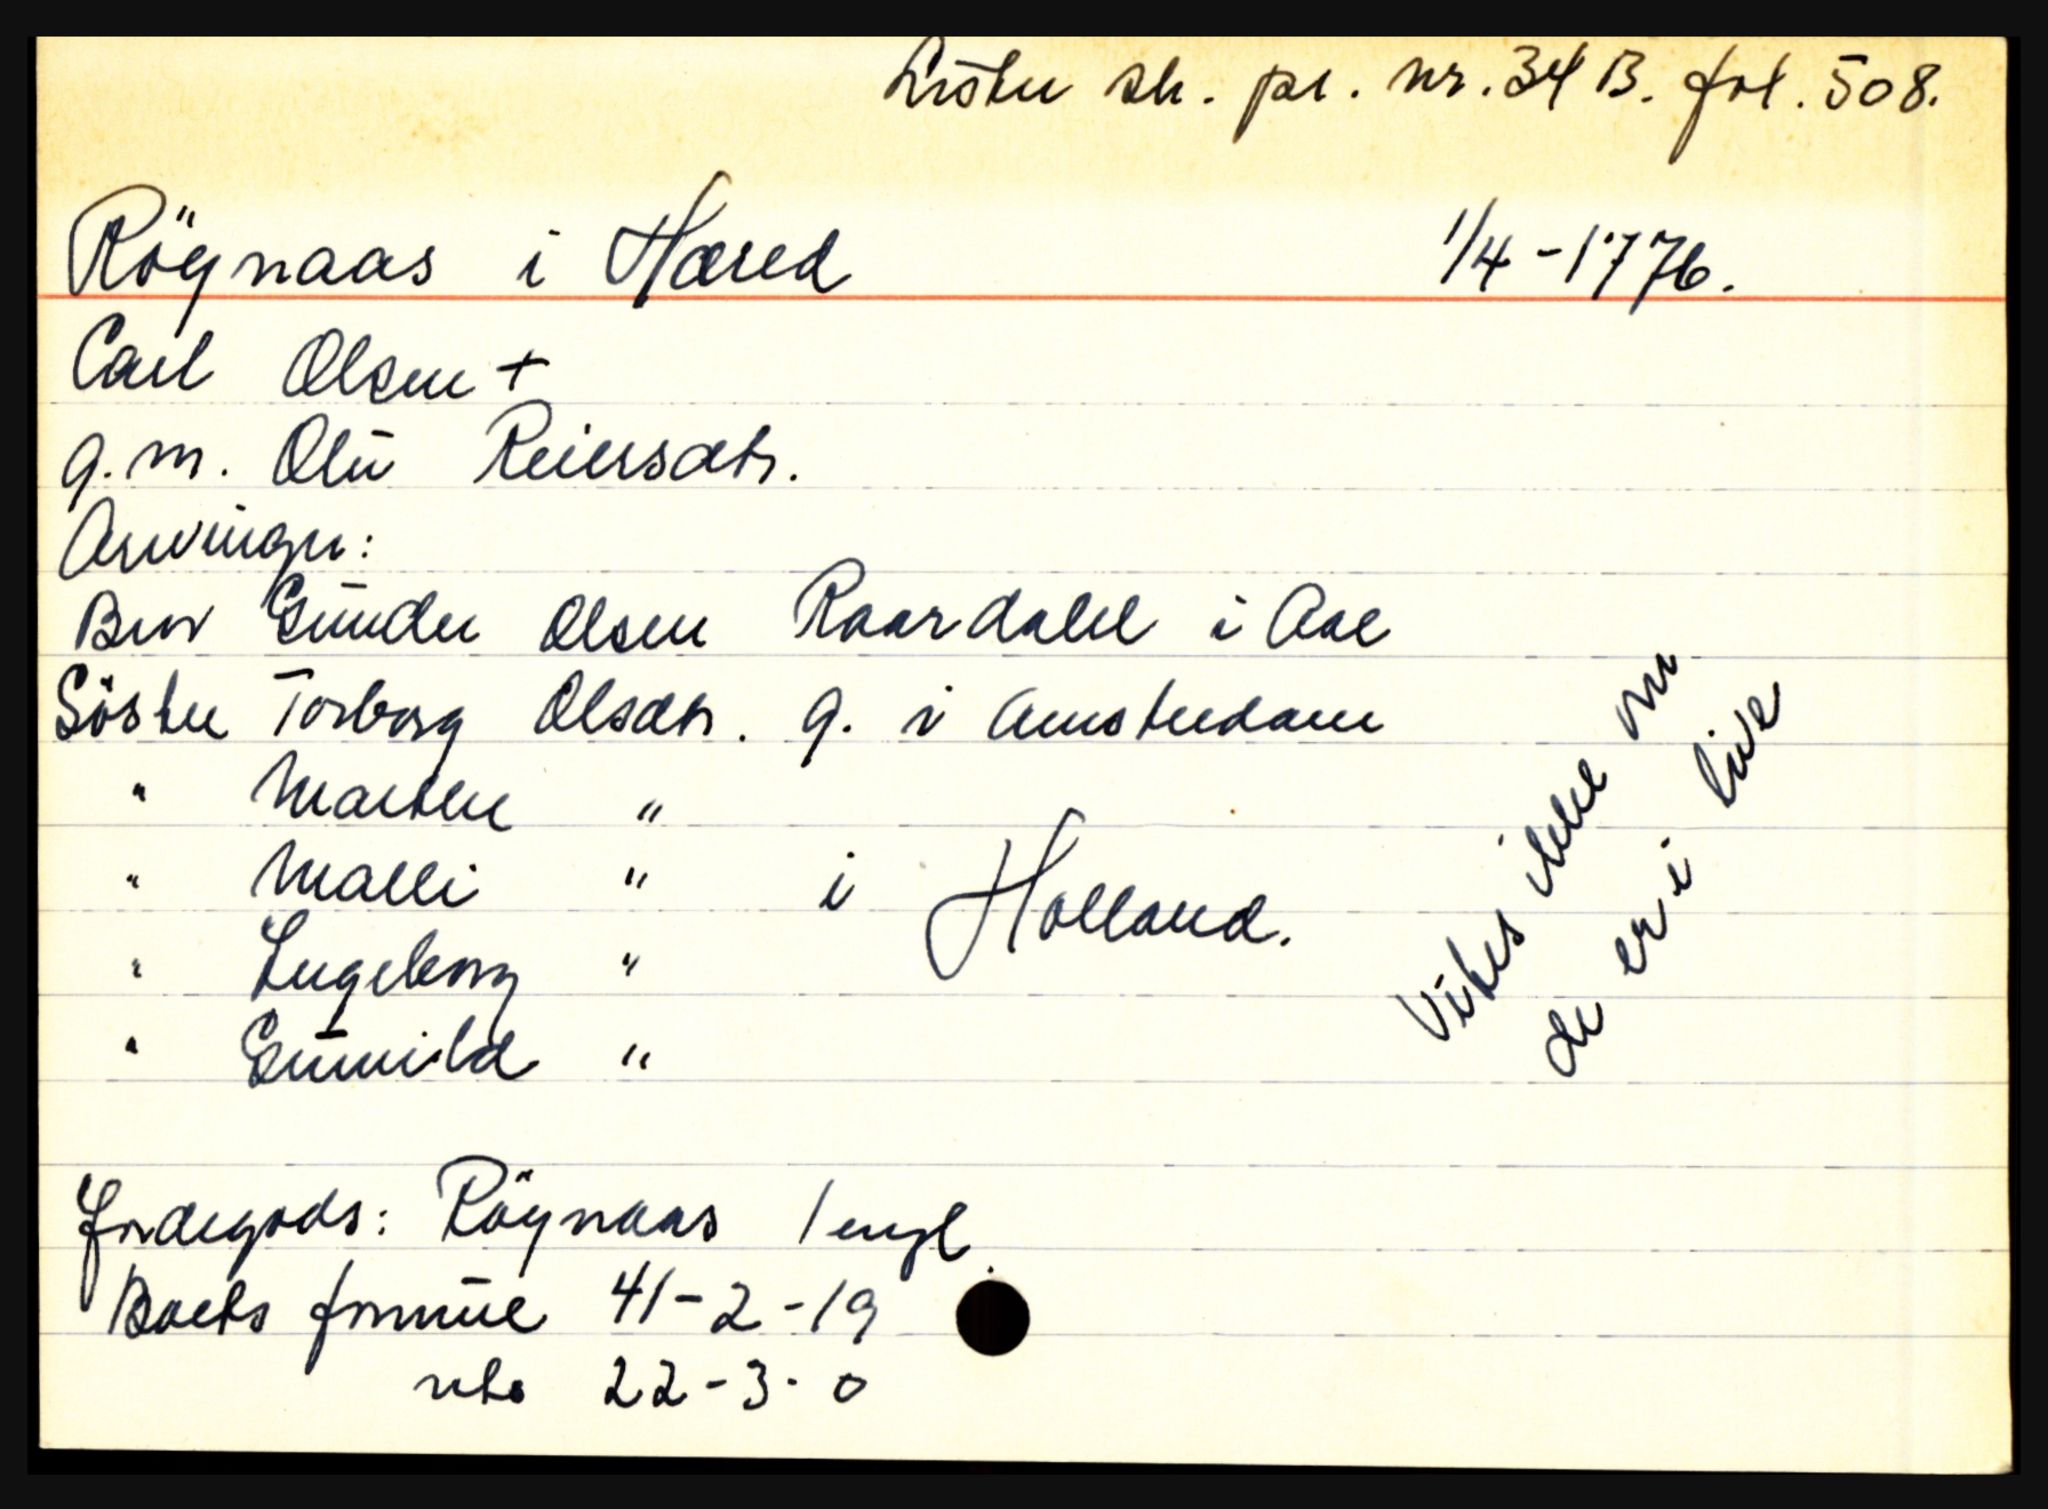 Lister sk. pr. nr. 34 B. fol. 508.
Röynaas i Hæred 1/4-1776.
Carl Olsen +
g.m. Olü Reiersdtr.
Arvinger:
Bror Gunder Olsen Raardalel i Aae
Söster Torborg Olsdtr. g. i Amsterdam
" Marthe "
" Malli " i Holland.
" Ingeborg "
" Gunnild "
Vites ikke om
de er i live
Jordegods: Röynaas 1 engl.
Boets formue 41-2-19
nto 22-3-0